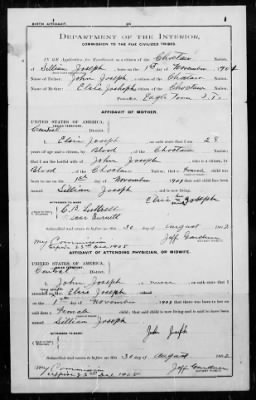 BIRTH AFFIDAVIT.
DEPARTMENT OF THE INTERIOR,
COMMISSION TO THE FIVE CIVILIZED TRIBES.
IN RE Application for Enrollment, as a citizen of the Choctaw Nation, of
Lillian Joseph, born on the 1st day of November, 190
Name of Father: John Joseph a citizen of the Choctaw Nation.
Name of Mother: Elsie Joseph a citizen of the Choctaw Nation.
Postoffice Eagle Town I.T.
AFFIDAVIT OF MOTHER.
UNITED STATES OF AMERICA,
INDIAN TERRITORY,
Central District.
I, Elsie Joseph, on oath state that I am 28
years of age and a citizen, by Blood, of the Choctaw Nation;
that I am the lawful wife of John Joseph, who is a citizen, by
Blood, of the Choctaw Nation; that a Female child was born
to me on the 1st day of November, 190 ; that said child has been
named Lillian Joseph, and is now living.
Elsie her mark Joseph
WITNESSES TO MARK:
Subscribed and sworn to before me this 30 day of August, 1902
My Commission
Expires 23rd Dec 1905
Jeff Gardner
NOTARY PUBLIC.
AFFIDAVIT OF ATTENDING PHYSICIAN, OR MIDWIFE.
UNITED STATES OF AMERICA,
INDIAN TERRITORY,
Central District.
I, John Joseph, a
on the 1st day of November, 190 ; that there was born to her on said
date a Female child; that said child is now living and is said to have been
named Lillian Joseph
John Joseph
WITNESSES TO MARK:
Subscribed and sworn to before me this 30 day of August, 1902
My Commission
Expires 23rd Dec 1905
Jeff Gardner
NOTARY PUBLIC.